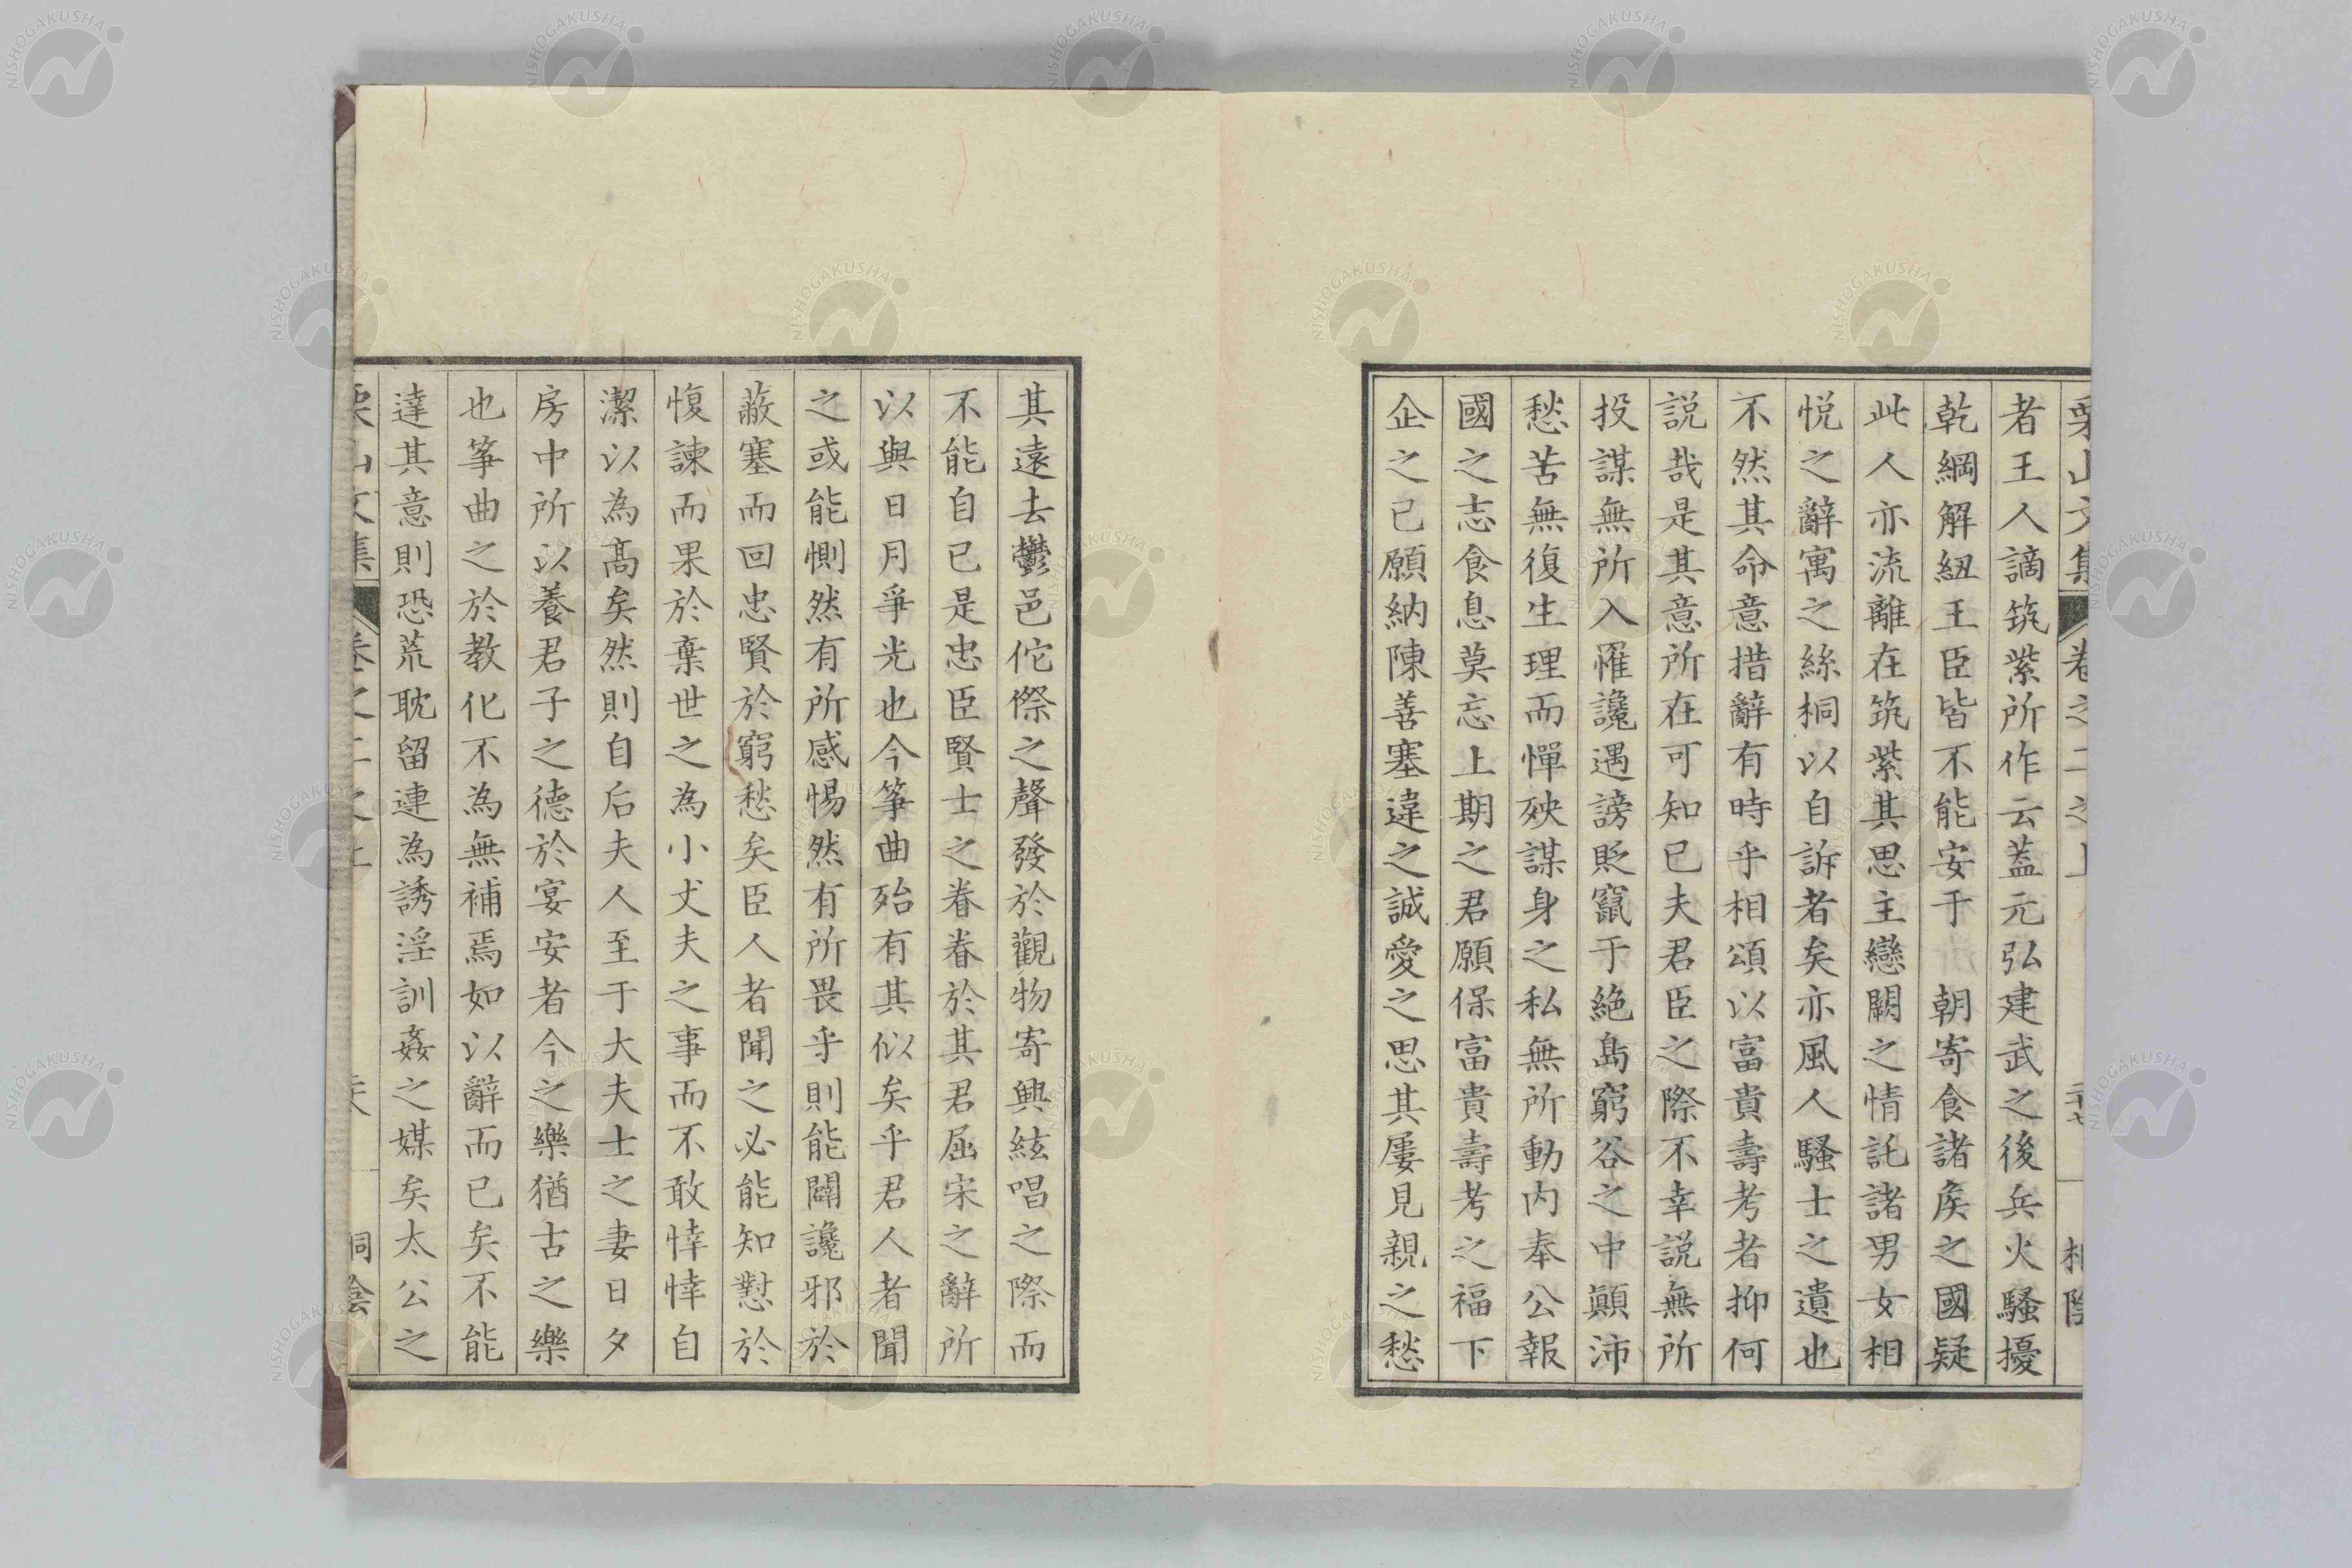 栗山文集 卷之二之上 二十七
者王人謫筑紫所作云蓋元弘建武之後兵火騷擾
乾綱解紐王臣皆不能安于 朝寄食諸矦之國疑
此人亦流離在筑紫其思主戀闕之情託諸男女相
悅之辭寓之絲桐以自訴者矣亦風人騷士之遺也
不然其命意措辭有時乎相頌以富貴壽考者抑何
説哉是其意所在可知已夫君臣之際不幸説無所
投謀無所入罹讒遇謗貶竄于絶島窮谷之中顚沛
愁苦無復生理而憚殃謀身之私無所動内奉公報
國之志食息莫忘上期之君願保富貴壽考之福下
企之已願納陳善塞違之誠愛之思其屢見親之愁
其遠去鬱邑侘傺之聲發於觀物寄興絃唱之際而
不能自已是忠臣賢士之眷眷於其君屈宋之辭所
以與日月爭光也今筝曲殆有其似矣乎君人者聞
之或能惻然有所感惕然有所畏乎則能闢讒邪於
蔽塞而回忠賢於窮愁矣臣人者聞之必能知懟於
愎諫而果於棄世之為小丈夫之事而不敢悻悻自
潔以為高矣然則自后夫人至于大夫士之妻日夕
房中所以養君子之德於宴安者今之樂猶古之樂
也筝曲之於教化不為無補焉如以辭而已矣不能
達其意則恐荒耽留連為誘淫訓姦之媒矣太公之
栗山文集 卷之二之上